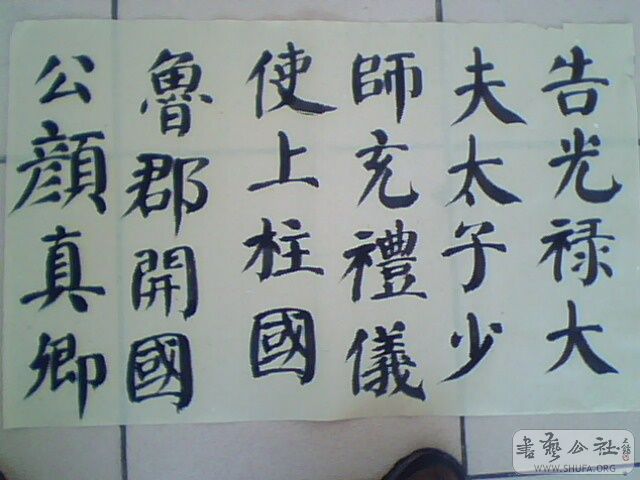 告光禄大
夫太子少
師充禮儀
使上柱國
魯郡開國
公顔真卿
書藝公社
WWW.SHUFA.ORG